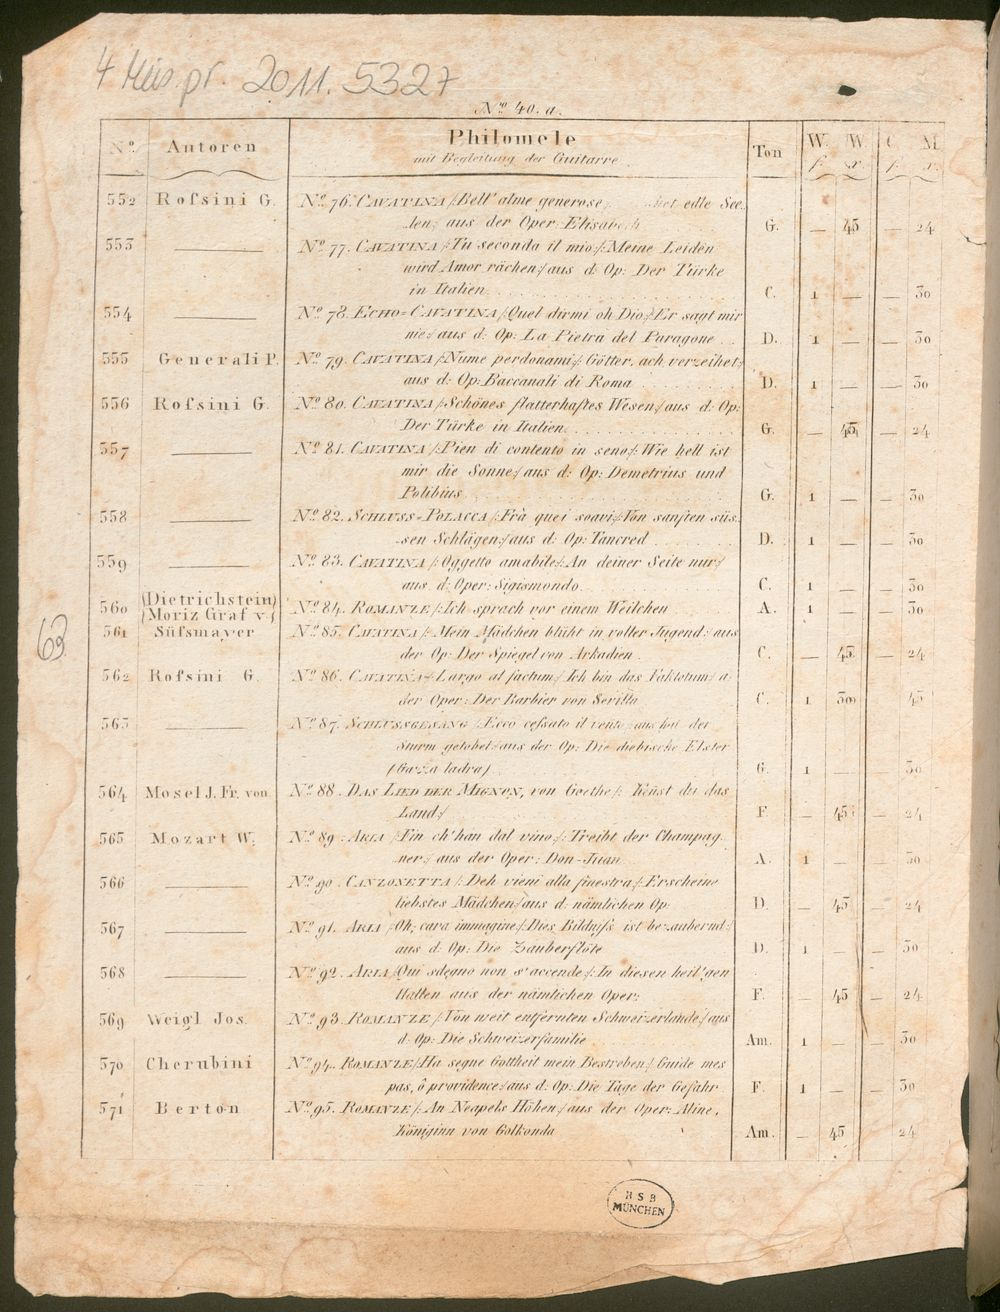 4 Mus.pr. 2011.5327
No. 40. a.
No. Autoren Philomele Ton W. W. C. M.
mit Begleitung der Guitarre f. x. f. x.
552 Rofsini G. No. 76. CAVATINA /:Bell' alme generose, het edle See_
len;/ aus der Oper: Elisabeth G. — 45 — 24
553 ——— No. 77. CAVATINA /:Tu seconda il mio:/:Meine Leiden
wird Amor rächen:/ aus d: Op: Der Türke
in Italien C. 1 — — 30
554 ——— No. 78. ECHO=CAVATINA /:Quel dirmi oh Dio:/:Er sagt mir
nie:/ aus d: Op: La Pietra del Paragone D. 1 — — 30
555 Generali P. No. 79. CAVATINA /:Nume perdonami:/: Götter, ach verzeihet:/
aus d: Op: Baccanali di Roma D. 1 — — 30
556 Rofsini G. No. 80. CAVATINA /:Schönes flatterhaftes Wesen:/ aus d: Op:
Der Türke in Italien G. — 45 — 24
557 ——— No. 81. CAVATINA /:Pien di contento in seno:/: Wie hell ist
mir die Sonne:/ aus d: Op: Demetrius und
Polibius G. 1 — — 30
558 ——— No. 82. SCHLUSS=POLACCA /:Frà quei soavi:/:Von sanften süs_
sen Schlägen:/ aus d: Op: Tancred D. 1 — — 30
559 ——— No. 83. CAVATINA /:Oggetto amabile:/:An deiner Seite nur:/
aus d: Oper: Sigismondo C. 1 — — 30
560 (Dietrichstein) No. 84. ROMANZE /:Ich sprach vor einem Weilchen A. 1 — — 30
(Moriz Graf v.)
561 Süfsmayer No. 85. CAVATINA /: Mein Mädchen blüht in voller Jugend:/ aus
der Op: Der Spiegel von Arkadien C. — 45 — 24
562 Rofsini G. No. 86. CAVATINA /:Largo al factum:/ Ich bin das Faktotum:/ a
der Oper: Der Barbier von Sevilla C. 1 30 — 45
563 ——— No. 87. SCHLUSSGESANG /:Ecco cefsato il vento: aus hat der
Sturm getobet:/ aus der Op: Die diebische Elster
(Gazza ladra) G. 1 — — 30
564 Mosel J. Fr. von No. 88. DAS LIED DER MIGNON, von Goethe /: Keñst du das
Land:/ F. — 45 — 24
565 Mozart W. No. 89. ARIA /:Fin ch'han dal vino:/: Treibt der Champag_
ner:/ aus der Oper: Don=Juan A. 1 — — 30
566 ——— No. 90. CANZONETTA /:Deh vieni alla finestra:/:Erscheine
liebstes Mädchen:/ aus d: nämlichen Op: D. — 45 — 24
567 ——— No. 91. ARIA /:Oh, cara immagine:/:Dies Bildnifs ist bezaubernd:/
aus d: Op: Die Zauberflöte D. 1 — — 30
568 ——— No. 92. ARIA /:Qui sdegno non s'accende:/:In diesen heil'gen
Hallen aus der nämlichen Oper: F. — 45 — 24
569 Weigl Jos. No. 93. ROMANZE /:Von weit entfernten Schweizerlande:/ aus
d: Op: Die Schweizerfamilie Am. 1 — — 30
570 Cherubini No. 94. ROMANZE /:Ha segne Gottheit mein Bestreben:/ Guide mes
pas, ô providence:/ aus d: Op: Die Tage der Gefahr F. 1 — — 30
571 Berton No. 95. ROMANZE /: An Neapels Höhen:/ aus der Oper: Aline,
Königinn von Golkonda Am. — 45 24
63
BSB
MÜNCHEN